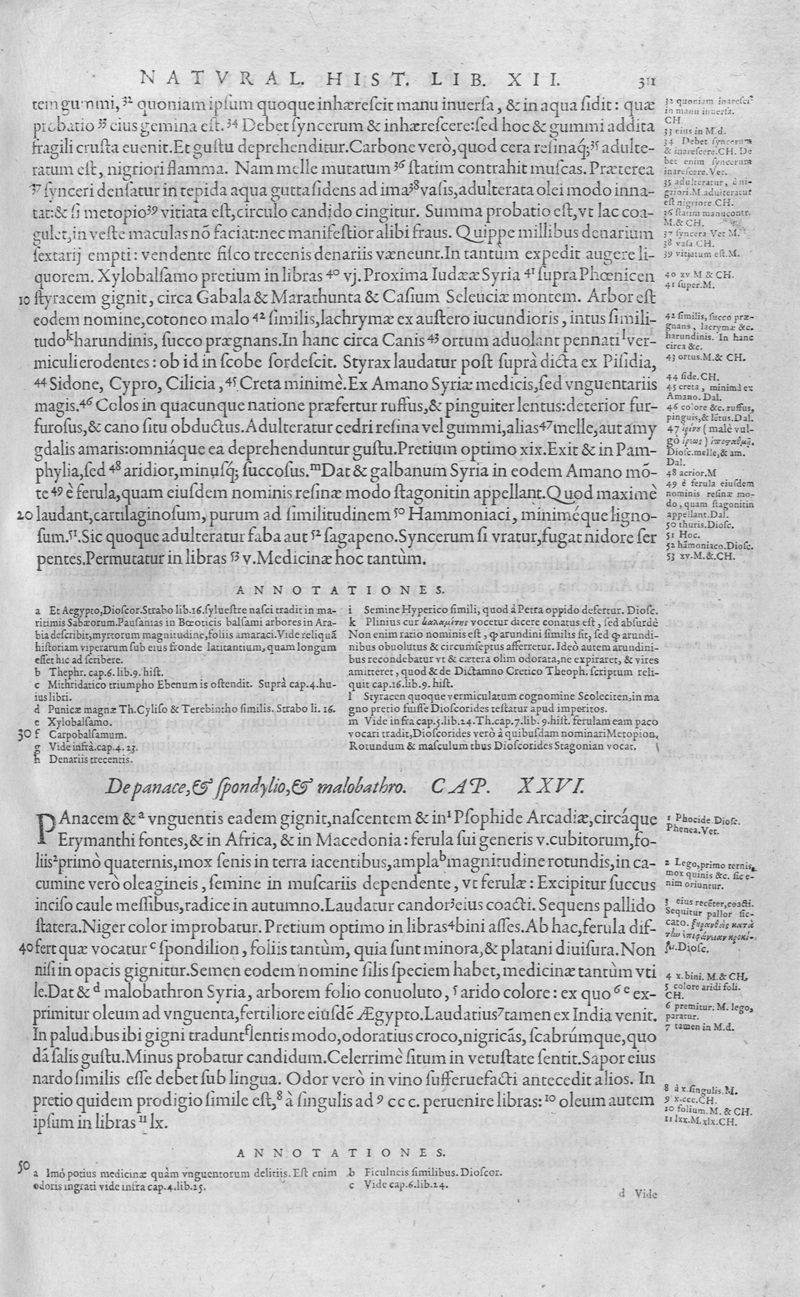 NATVRAL. HIST. LIB. XII. 311
tem gummi, 32 quoniam ipſum quoque inhæreſcit manu inuerſa, & in aqua ſidit: quæ
probatio 33 eius gemina eſt. 34 Debet ſyncerum & inhæreſcere: ſed hoc & gummi addita
fragili cruſta euenit. Et guſtu deprehenditur. Carbone verò, quod cera reſinaq́; 35 adulte-
ratum eſt, nigriori flamma. Nam melle mutatum 36 ſtatim contrahit muſcas. Præterea
37 ſynceri denſatur in tepida aqua gutta ſidens ad ima 38 vaſis, adulterata olei modo inna-
tat: & ſi metopio 39 vitiata eſt, circulo candido cingitur. Summa probatio eſt, vt lac coa-
gulet, in veſte maculas nō faciat: nec manifeſtior alibi fraus. Quippe millibus denarium
ſextarij empti: vendente fiſco trecenis denariis væneunt. In tantùm expedit augere li-
quorem. Xylobalſamo pretium in libras 40 vj. Proxima Iudææ Syria 41 ſupra Phœnicen
10 ſtyracem gignit, circa Gabala & Marathunta & Caſium Seleuciæ montem. Arbor eſt
eodem nomine, cotoneo malo 42 ſimilis, lachrymæ ex auſtero iucundioris, intus ſimili-
tudo k harundinis, ſucco prægnans. In hanc circa Canis 43 ortum aduolant pennati l ver-
miculi erodentes: ob id in ſcobe ſordeſcit. Styrax laudatur poſt ſuprà dicta ex Piſidia,
44 Sidone, Cypro, Cilicia, 45 Creta minimè. Ex Amano Syriæ medicis, ſed vnguentariis
magis. 46 Colos in quacunque natione præfertur ruffus, & pinguiter lentus: deterior fur-
furoſus, & cano ſitu obductus. Adulteratur cedri reſina vel gummi, alias 47 melle, aut amy
gdalis amaris: omniáque ea deprehenduntur guſtu. Pretium optimo xix. Exit & in Pam-
phylia, ſed 48 aridior, minuſq́; ſuccoſus. m Dat & galbanum Syria in eodem Amano mō-
te 49 è ferula, quam eiuſdem nominis reſinæ modo ſtagonitin appellant. Quod maximè
20 laudant, cartilaginoſum, purum ad ſimilitudinem 50 Hammoniaci, miniméque ligno-
ſum. 51. Sic quoque adulteratur faba aut 52 ſagapeno. Syncerum ſi vratur, fugat nidore ſer
pentes. Permutatur in libras 53 v. Medicinæ hoc tantùm.
32 quoniam inareſcit
in manu inuerſa.
CH.
33 eius in M.d.
34 Debet ſyncerum
& inareſcere. CH. De
bet enim ſyncerum
inareſcere. Vet.
35 adulteratur, è ni-
griori. M. adulteratur
eſt nigriore. CH.
36 ſtatim manu contr.
M. & CH.
37 ſyncera Vet M.
38 vaſa CH.
39 vitiatum eſt. M.
40 xv M & CH.
41 ſuper. M.
42 ſimilis, ſucco præ-
gnans, lacrymæ &c.
harundinis. In hanc
circa &c.
43 ortus. M. & CH.
44 ſide. CH.
45 creta, minimè ex
Amano. Dal.
46 colore &c. ruffus,
pinguis, & lētus. Dal.
47
Dioſc. melle, & am.
Dal.
48 acrior. M
49 è ferula eiuſdem
nominis reſinæ mo-
do, quam ſtagonitin
appellant. Dal.
50 thuris. Dioſc.
51 Hoc.
52 hāmoniaco. Dioſc.
53 xv. M. &. CH.
ANNOTATIONES.
a Et Aegypto, Dioſcor. Strabo lib. 16. ſylueſtre naſci tradit in ma-
ritimis Sabæorum. Pauſanias in Bœoticis balſami arbores in Ara-
bia deſcribit, myrtorum magnitudine, foliis amaraci. Vide reliquā
hiſtoriam viperarum ſub eius fronde latitantium, quam longum
eſſet hic adſcribere.
b Thephr. cap. 6. lib. 9. hiſt.
c Mithridatico triumpho Ebenum is oſtendit. Suprà cap. 4. hu-
ius libri.
d Punicæ magnæ Th. Cyliſo & Terebintho ſimilis. Strabo li. 16.
e Xylobalſamo.
30 f Carpobalſamum.
g Vide infrà. cap. 4. 23.
h Denariis trecentis.
i Semine Hyperico ſimili, quod à Petra oppido defertur. Dioſc.
k Plinius cur καλαμίτης vocetur dicere conatus eſt, ſed abſurdè
Non enim ratio nominis eſt, ꝙ arundini ſimilis ſit, ſed ꝙ arundi-
nibus obuolutus & circumſeptus afferretur. Ideò autem arundini-
bus recondebatur vt & cætera olim odorata, ne expiraret, & vires
amitteret, quod & de Dictamno Cretico Theoph. ſcriptum reli-
quit cap. 16. lib. 9. hiſt.
l Styracen quoque vermiculatum cognomine Scoleciten, in ma
gno pretio fuiſſe Dioſcorides teſtatur apud imperitos.
m Vide infra cap. 5. lib. 24. Th. cap. 7. lib. 9. hiſt. ferulam eam paco
vocari tradit, Dioſcorides verò à quibuſdam nominari Metopion,
Rotundum & maſculum thus Dioſcorides Stagonian vocat.
De panace, & ſpondylio, & malobathro. CAP. XXVI.
PAnacem & a vnguentis eadem gignit, naſcentem & in 1 Pſophide Arcadiæ, circáque
Erymanthi fontes, & in Africa, & in Macedonia: ferula ſui generis v. cubitorum, fo-
liis 2 primò quaternis, mox ſenis in terra iacentibus, ampla b magnitudine rotundis, in ca-
cumine verò oleagineis, ſemine in muſcariis dependente, vt ferulæ: Excipitur ſuccus
inciſo caule meſſibus, radice in autumno. Laudatur candor 3 eius coacti. Sequens pallido
ſtatera. Niger color improbatur. Pretium optimo in libras 4 bini aſſes. Ab hac, ferula dif-
40 fert quæ vocatur c ſpondilion, foliis tantùm, quia ſunt minora, & platani diuiſura. Non
niſi in opacis gignitur. Semen eodem nomine ſilis ſpeciem habet, medicinæ tantùm vti
le. Dat & d malobathron Syria, arborem folio conuoluto, 5 arido colore: ex quo 6 e ex-
primitur oleum ad vnguenta, fertiliore eiuſdē Ægypto. Laudatius 7 tamen ex India venit.
In paludibus ibi gigni tradunt f lentis modo, odoratius croco, nigricās, ſcabrúmque, quo
dā ſalis guſtu. Minus probatur candidum. Celerrimè ſitum in vetuſtate ſentit. Sapor eius
nardo ſimilis eſſe debet ſub lingua. Odor verò in vino ſufferuefacti antecedit alios. In
pretio quidem prodigio ſimile eſt, 8 à ſingulis ad 9 ccc. peruenire libras: 10 oleum autem
ipſum in libras 11 lx.
1 Phocide Dioſc.
Phenea. Vet.
2 Lego, primo ternis,
mox quinis &c. ſic e-
nim oriuntur.
3 eius recēter, coacti.
Sequitur pallor ſic-
cato.
Dioſc.
4 x. bini. M. & CH.
5 colore aridi foli.
CH.
6 premitur. M. lego,
paratur.
7 tamen in M. d.
8 à x. ſingulis. M.
9 x. ccc. CH.
10 folium. M. & CH.
11 lxx. M. xlx. CH.
ANNOTATIONES.
50 a Imò potius medicinæ quàm vnguentorum delitiis. Eſt enim
odoris ingrati vide infra cap. 4. lib. 25.
b Ficulneis ſimilibus. Dioſcor.
c Vide cap. 6. lib. 24.
d Vide